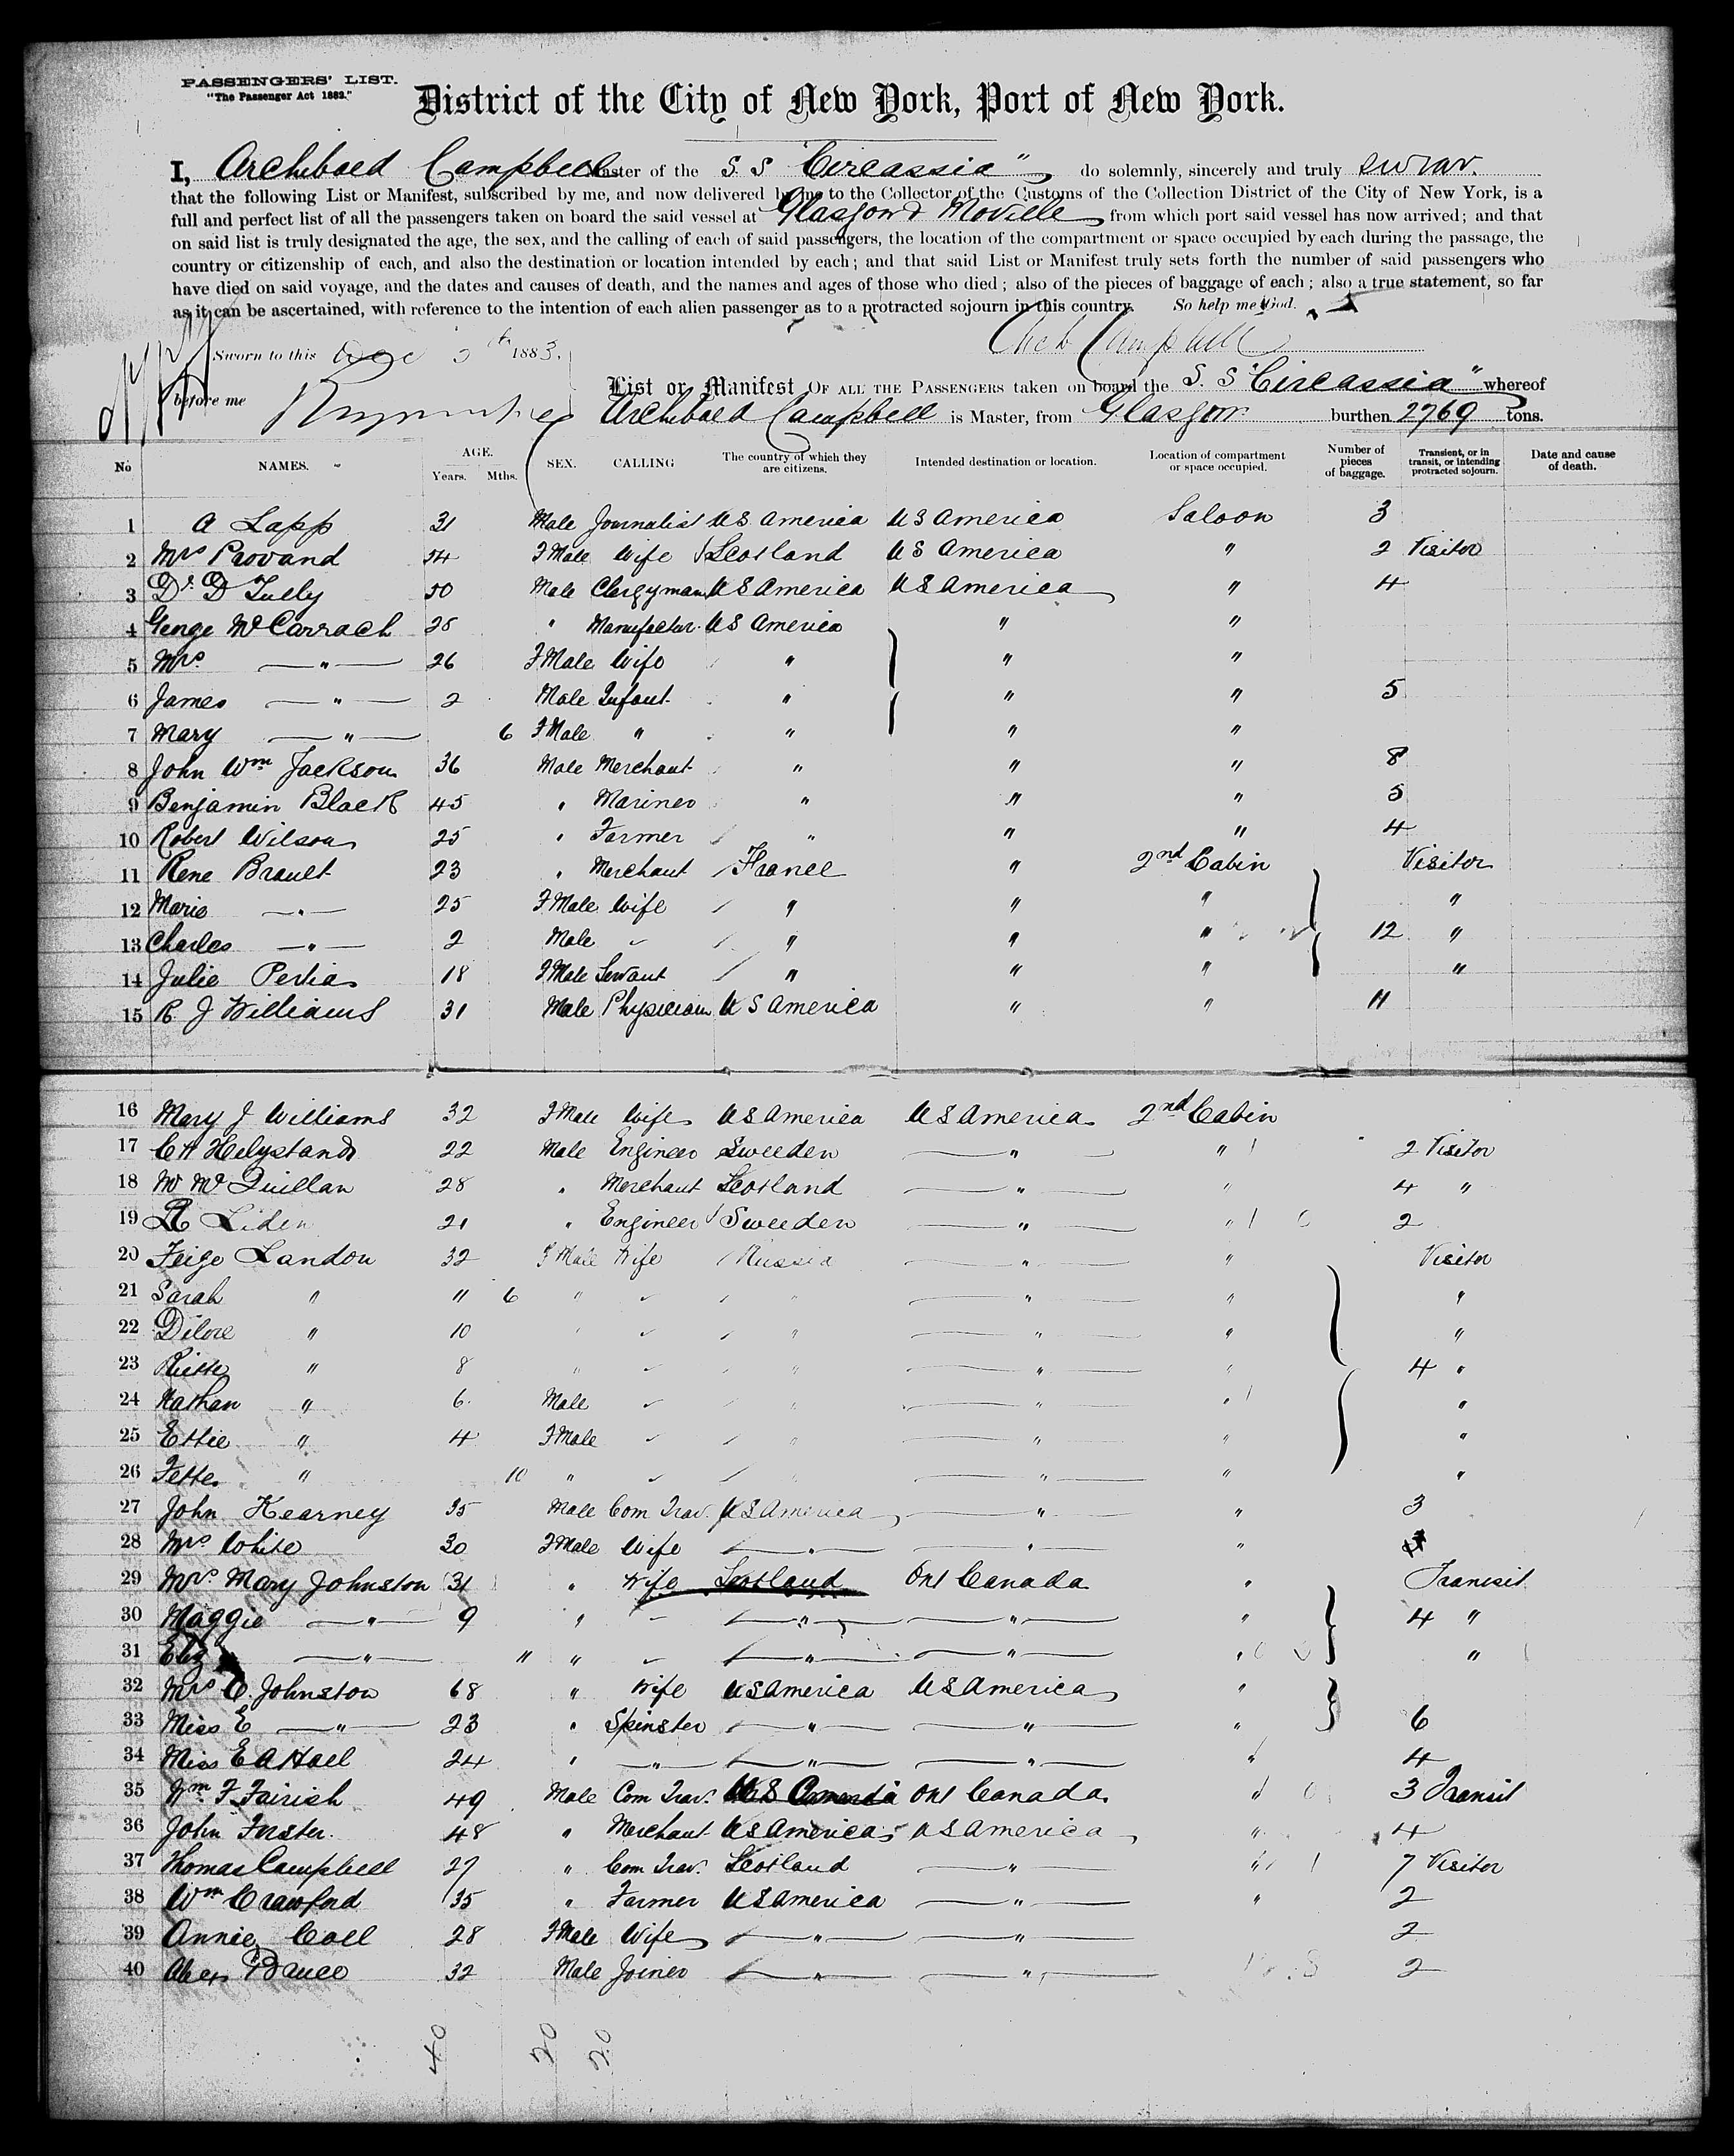 PASSENGERS' LIST.
"The Passenger Act 1882."
District of the City of New York, Port of New York.
I, Archibald Campbell Master of the S. S "Circassia" do solemnly, sincerely and truly swear.
that the following List or Manifest, subscribed by me, and now delivered by me to the Collector of the Customs of the Collection District of the City of New York, is a
full and perfect list of all the passengers taken on board the said vessel at Glasgow & Moville from which port said vessel has now arrived; and that
on said list is truly designated the age, the sex, and the calling of each of said passengers, the location of the compartment or space occupied by each during the passage, the
country or citizenship of each, and also the destination or location intended by each; and that said List or Manifest truly sets forth the number of said passengers who
have died on said voyage, and the dates and causes of death, and the names and ages of those who died; also of the pieces of baggage of each; also a true statement, so far
as it can be ascertained, with reference to the intention of each alien passenger as to a protracted sojourn in this country. So help me God.
Arch Campbell
Sworn to this Dec 5th 1883.
List or Manifest OF ALL THE PASSENGERS taken on board the S. S "Circassia" whereof
before me Archibald Campbell is Master, from Glasgow burthen 2769 tons.
No NAMES. AGE. Years. Mths. SEX. CALLING The country of which they are citizens. Intended destination or location. Location of compartment or space occupied. Number of pieces of baggage. Transient, or in transit, or intending protracted sojourn. Date and cause of death.
1 A Lapp 31 Male Journalist U S America U S America Saloon 3
2 Mrs Provand 54 FMale Wife Scotland U S America " 2 Visitor
3 Dr. D Tully 50 Male Clergyman U S America U S America " 4
4 George McCarrach 28 " Manufactur. U S America " "
5 Mrs. " 26 FMale Wife " " "
6 James " 2 Male Infant " " " 5
7 Mary " 6 FMale " " " "
8 John Wm Jackson 36 Male Merchant " " " 8
9 Benjamin Black 45 " Mariner " " " 5
10 Robert Wilson 25 " Farmer " " " 4
11 Rene Brault 23 " Merchant France " 2nd Cabin Visitor
12 Marie " 25 FMale Wife " " " "
13 Charles " 2 Male " " " 12 "
14 Julie 18 FMale Servant " " " "
15 R J Williams 31 Male Physician U S America " " 11
16 Mary J Williams 32 FMale Wife U S America U S America 2nd Cabin
17 C A Helystand 22 Male Engineer Sweeden " " 2 Visitor
18 W McQuillan 28 " Merchant Scotland " " 4 "
19 Liden 21 " Engineer Sweeden " " 2
20 Feige Landon 32 FMale Wife Russia " " Visitor
21 Sarah " 11 6 " " " " "
22 " 10 " " " " "
23 " 8 " " " " 4 "
24 Nathan " 6 Male " " " "
25 Ettie " 4 FMale " " " "
26 Fette " 10 " " " " "
27 John Kearney 35 Male Com Trav. U S America " " 3
28 Mrs White 30 FMale Wife " " "
29 Mrs. Mary Johnston 31 " Wife Scotland Ont Canada " Transit
30 Maggie " 9 " " " " 4 "
31 Eliz " 11 " " " " "
32 Mrs C. Johnston 68 " Wife U S America U S America "
33 Miss E " 23 " Spinster " " " 6
34 Miss E A Hall 24 " " " " " 4
35 Wm F Fairish 49 Male Com Trav. Ont Canada " 3 Transit
36 John Foster. 48 " Merchant U S America U S America " 4
37 Thomas Campbell 27 " Com Trav. Scotland " " 7 Visitor
38 Wm Crawford 35 " Farmer U S America " " 2
39 Annie Coll 28 FMale Wife " " 2
40 Alex Bruce 32 Male Joiner " " 2
40 20 20